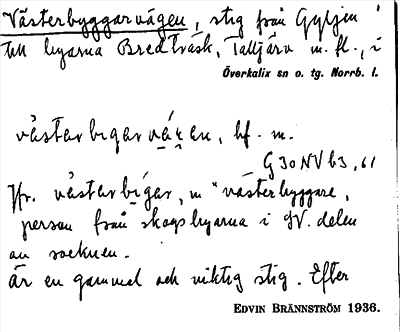 Västerbyggarvägen, stig från Gyljen
till byarna Bredträsk, Talljärv m. fl., i
Överkalix sn o. tg. Norrb. l.
västarbıgarvä̤ɡen, bf. m.
G 30 NV b3, 61
Jfr. västarbıgar, m "västerbyggare,
person från skogsbyarna i NV. delen
av socknen.
Är en gammal och viktig stig. Efter
EDVIN BRÄNNSTRÖM 1936.